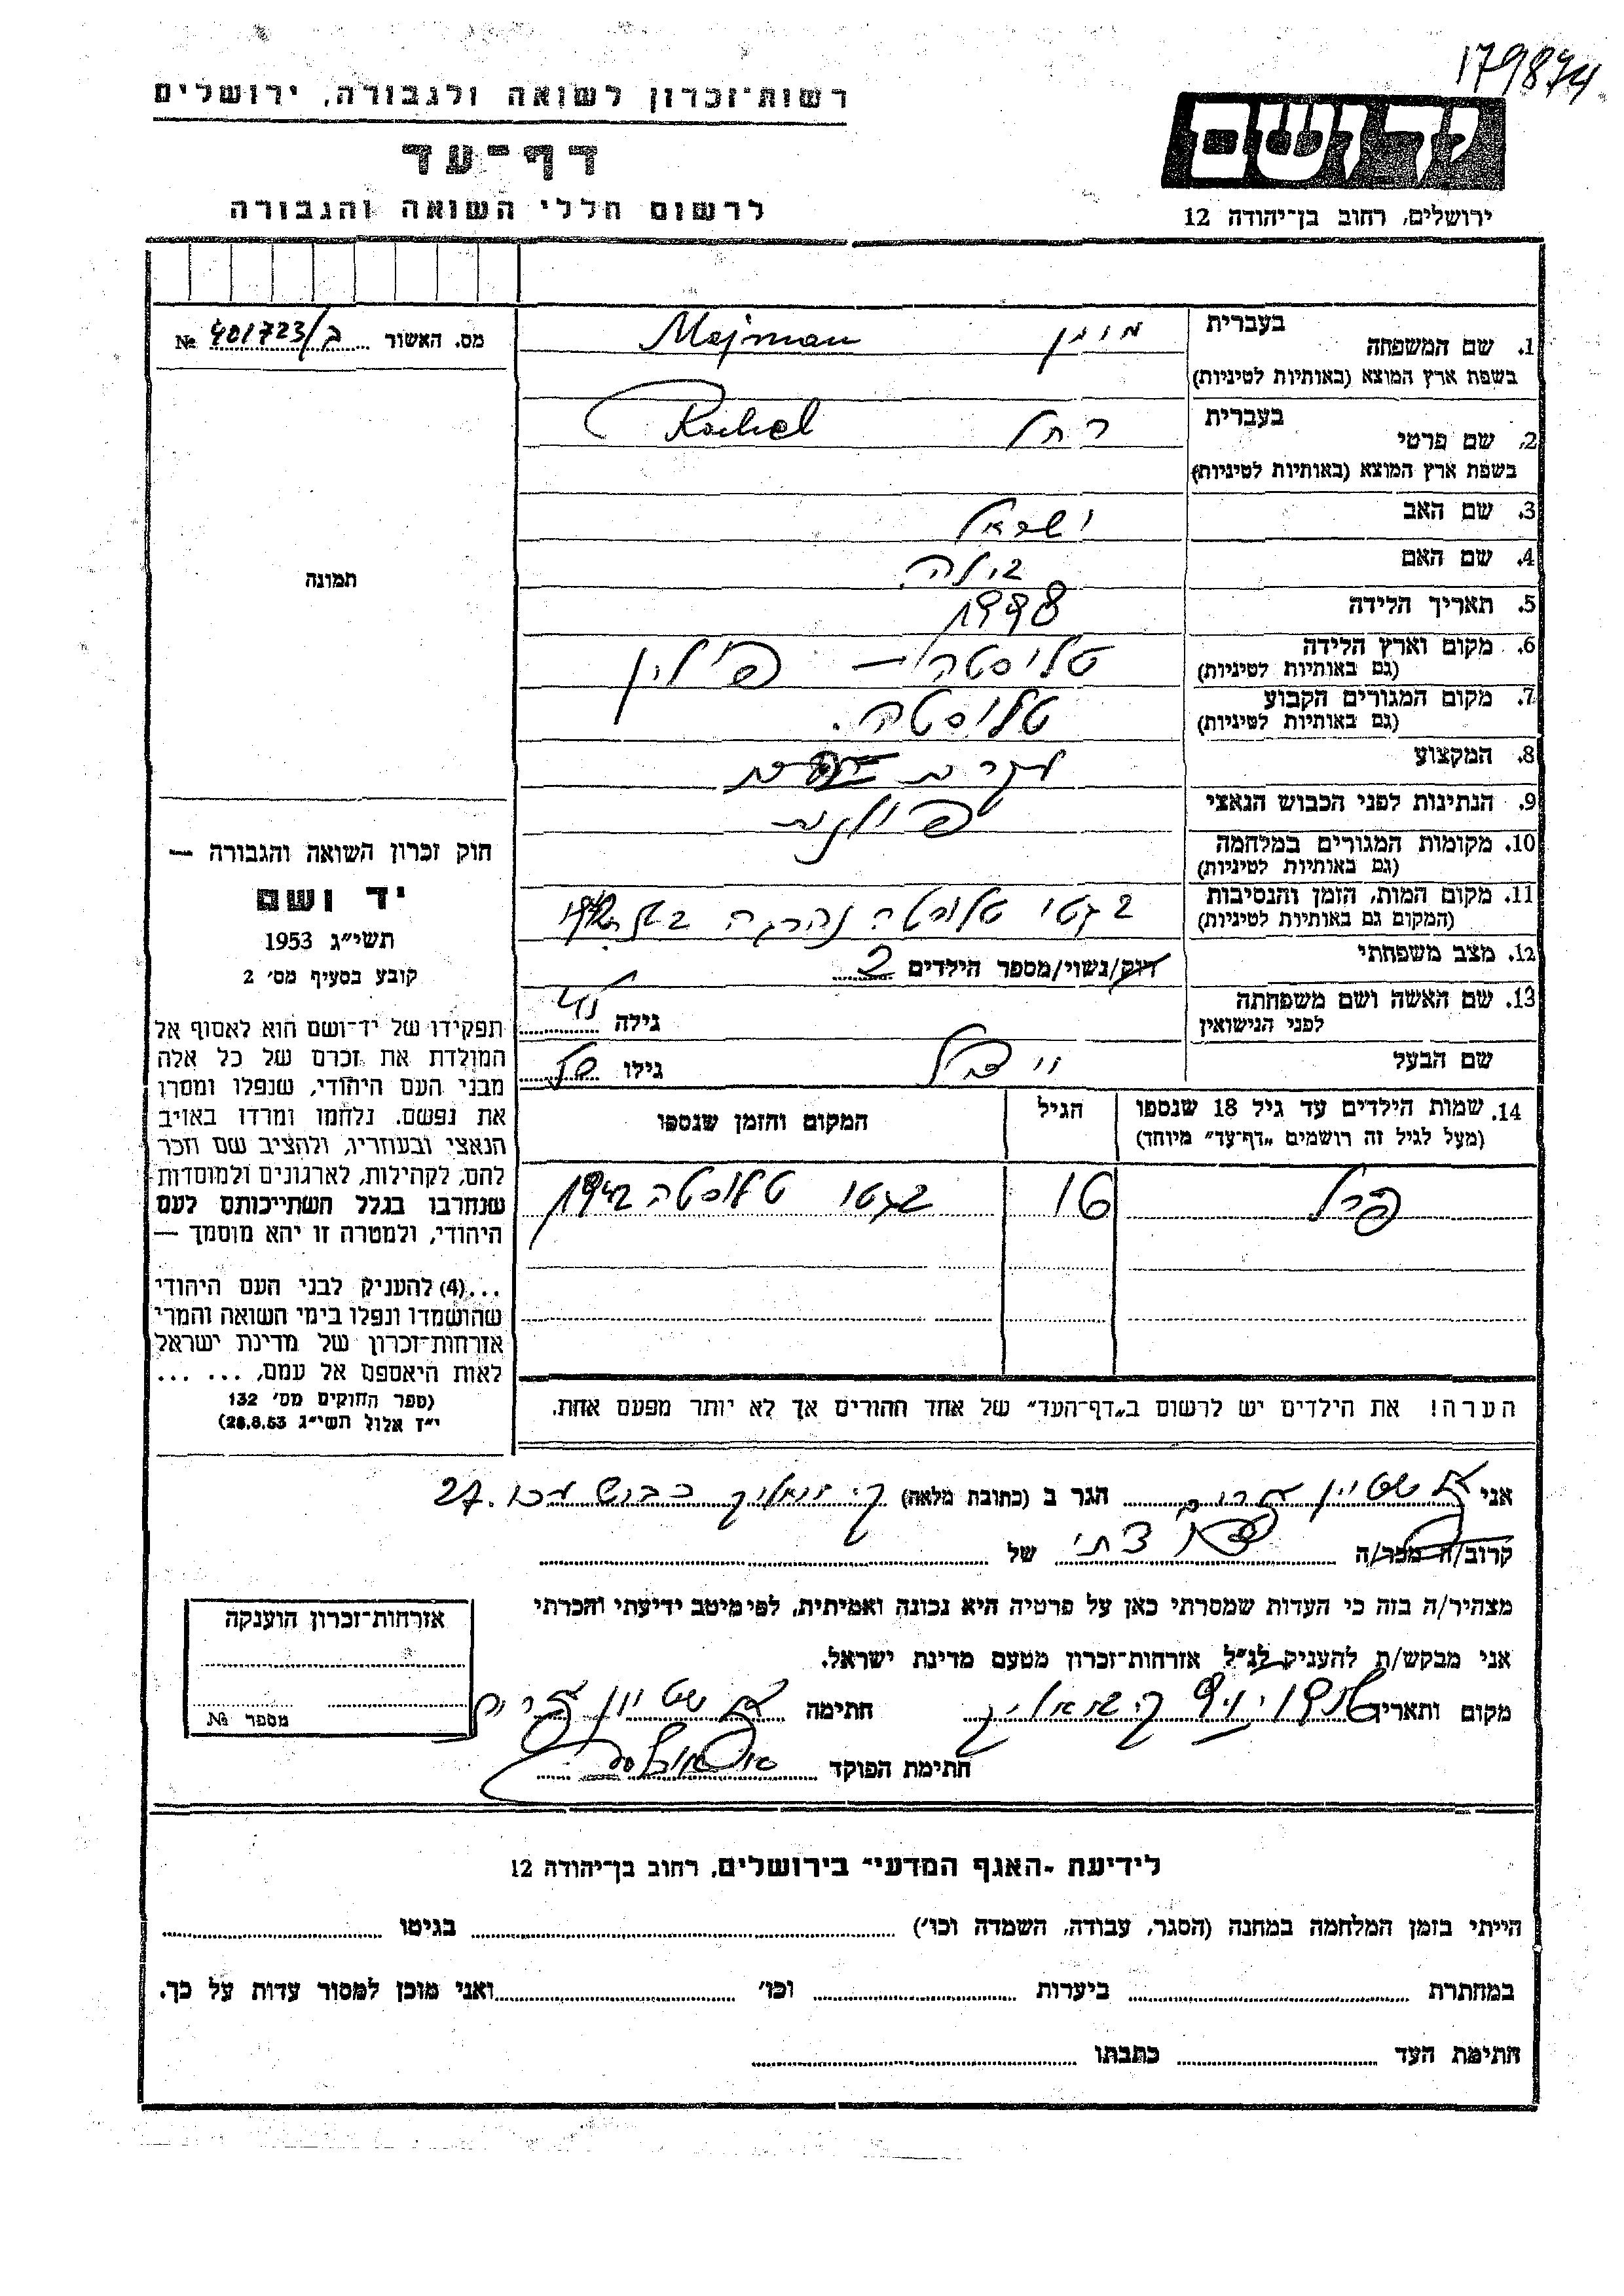 179874
רשות-זכרון לשואה ולגבורה, ירושלים
דף-עד
לרשום חללי השואה והגבורה
יד ושם
ירושלים, רחוב בן-יהודה 12
מס. האשור ב/401723 №
תמונה
חוק זכרון השואה והגבורה —
יד ושם
תשי״ג 1953
קובע בסעיף מס׳ 2
תפקידו של יד-ושם הוא לאסוף אל
המולדת את זכרם של כל אלה
מבני העם היהודי, שנפלו ומסרו
את נפשם. נלחמו ומרדו באויב
הנאצי ובעוזריו, ולהציב שם וזכר
להם, לקהילות, לארגונים ולמוסדות
שנחרבו בגלל השתייכותם לעם
היהודי, ולמטרה זו יהא מוסמך —
...(4) להעניק לבני העם היהודי
שהושמדו ונפלו בימי השואה והמרי
אזרחות-זכרון של מדינת ישראל
לאות היאספם אל עמם, ... ...
(ספר החוקים מס׳ 132
י״ז אלול תשי״ג 28.8.53)
בעברית
1. שם המשפחה Mejman
בשפת ארץ המוצא (באותיות לטיניות)
בעברית
2. שם פרטי רחל Rachel
בשפת ארץ המוצא (באותיות לטיניות)
3. שם האב ישראל
4. שם האם
5. תאריך הלידה
6. מקום וארץ הלידה טלוסטה — פולין
(גם באותיות לטיניות)
7. מקום המגורים הקבוע טלוסטה.
(גם באותיות לטיניות)
8. המקצוע עקרת
9. הנתינות לפני הכבוש הנאצי פולנית
10. מקומות המגורים במלחמה
(גם באותיות לטיניות)
11. מקום המות, הזמן והנסיבות בגטו טלוסטה נהרגה
(המקום גם באותיות לטיניות)
12. מצב משפחתי רוק/נשוי/מספר הילדים 2
13. שם האשה ושם משפחתה גילה
לפני הנישואין
שם הבעל גילו
14. שמות הילדים עד גיל 18 שנספו הגיל המקום והזמן שנספו
(מעל לגיל זה רושמים „דף-עד״ מיוחד)
פרל 16 בגטו טלוסטה 1942
הערה! את הילדים יש לרשום ב„דף-העד״ של אחד ההורים אך לא יותר מפעם אחת.
אני הגר ב (כתובת מלאה) 27.
קרוב/ה מכר/ה של
מצהיר/ה בזה כי העדות שמסרתי כאן על פרטיה היא נכונה ואמיתית, לפי מיטב ידיעתי והכרתי
אני מבקש/ת להעניק לנ״ל אזרחות-זכרון מטעם מדינת ישראל.
מקום ותאריך חתימה
חתימת הפוקד
אזרחות-זכרון הוענקה
מספר №
לידיעת ״האגף המדעי״ בירושלים, רחוב בן-יהודה 12
הייתי בזמן המלחמה במחנה (הסגר, עבודה, השמדה וכו׳) בגיטו
במחתרת ביערות וכו׳ ואני מוכן למסור עדות על כך.
חתימת העד כתבתו